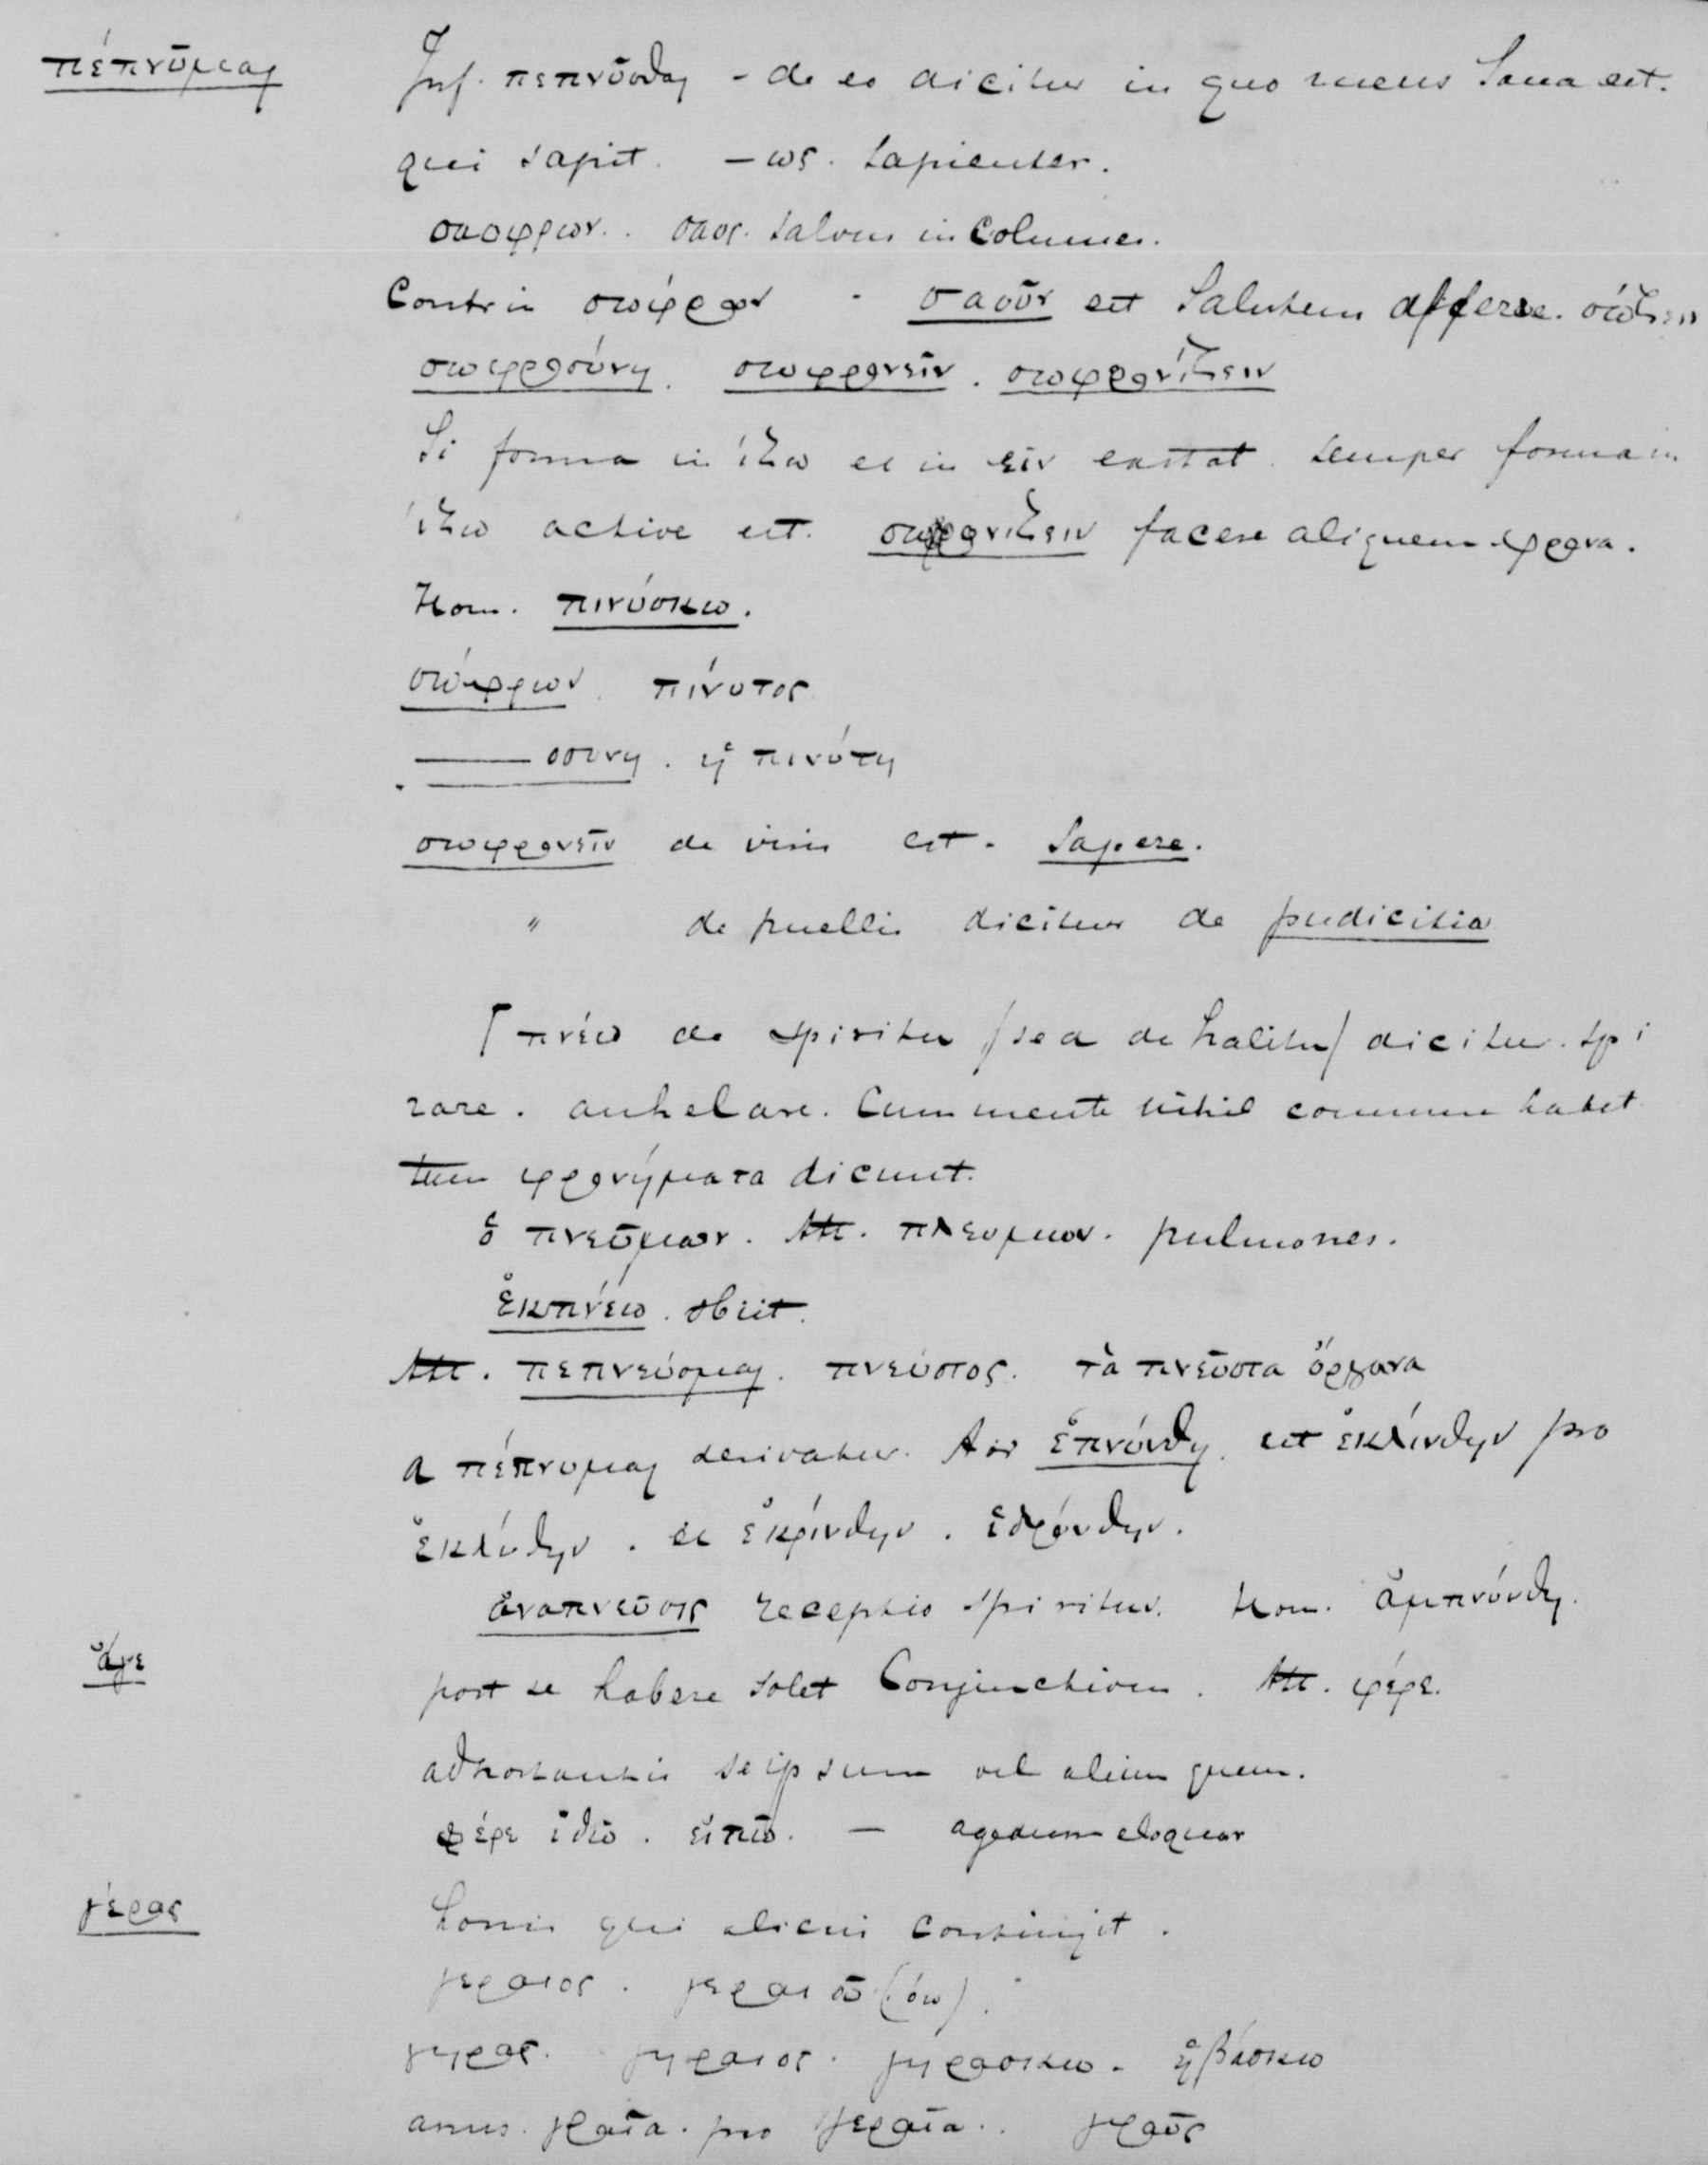 πέπνῦμαι Inf. πεπνῦσθαι - de eo dicitur in quo mens sana est.
qui sapit. — ως. sapienter.
σαοφρων. . σαος. salvus incolumes.
Contr in σώφρων - σαοῦν est salutem afferre. σώζειν
σωφροσύνη. σωφρονεῖν. σωφρονίζειν
Si forma in ίζω et in εῖν exstat semper forma in
ίζω active est. σωφρονιζειν facere aliquem φρονα.
Hom. πινύσκω.
σώφρων. πίνυτος
—— οσυνη. ἡ πινύτη
σωφρονεῖν de viris est. sapere.
" de puellis dicitur de pudicitia
⌈πνέω de spiritu /sed de halitu/ dicitur. spi
rare. anhelare. Cum mente nihil commune habet
tum φρονήματα dicunt.
ὁ πνεῦμων. Att. πλευμων. pulmones.
ἐκπνέω. obiit.
Att. πεπνεύσμαι. πνεύστος. τὰ πνεῦστα ὄργανα
a πέπνυμαι derivatur. Aor ἐπνύνθη. ut ἐκλίνθην pro
ἐκλίθην. et ἐκρίνθην. ἱδρύνθην.
ἀναπνεῦσις receptio spiritus. Hom. ἀμπνύνθη.
ἄγε post se habere solet Conjunctivum. Att. φέρε.
adhortantis seipsum vel alium quem.
φέρε ἰδῶ. εἰπῶ. — agedum eloquar
γέρας honis qui alicui contingit.
γεραιος. γεραιῶ (όω).
γηρας. γηραιος. γηρασκω. ἡβάσκω
anus. γραῖα. pro γεραῖα. . γραῦς